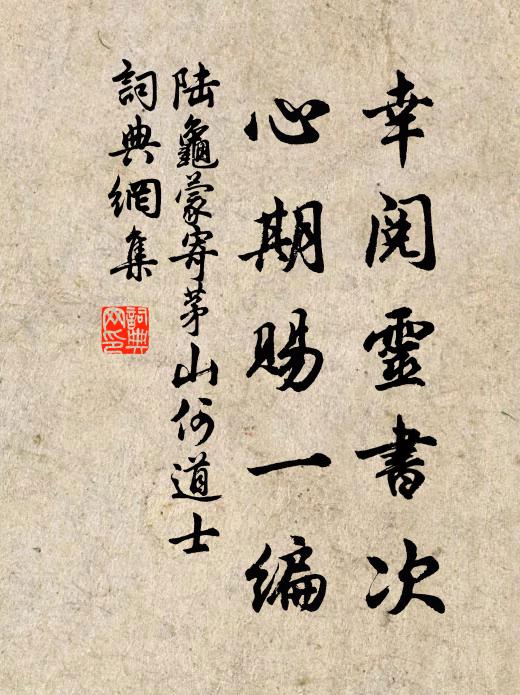 幸閱靈書次
心期賜一編
陆龜蒙寄茅山何道士
詞典網集
詞典
网印